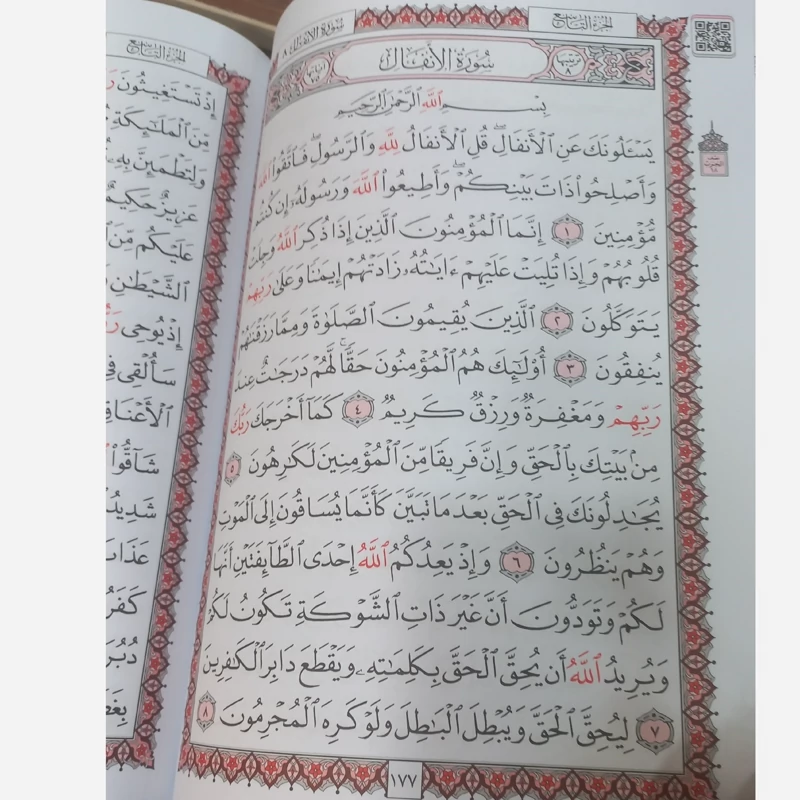 سورة الأنفال ٨
الجزء التاسع
ترتيبها ٨
سُورَةُ الأَنفَالِ
آياتها ٧٥
بِسْمِ ٱللَّهِ ٱلرَّحْمَٰنِ ٱلرَّحِيمِ
يَسْـَٔلُونَكَ عَنِ ٱلْأَنفَالِۖ قُلِ ٱلْأَنفَالُ لِلَّهِ وَٱلرَّسُولِۖ فَٱتَّقُوا۟ ٱللَّهَ
وَأَصْلِحُوا۟ ذَاتَ بَيْنِكُمْۖ وَأَطِيعُوا۟ ٱللَّهَ وَرَسُولَهُۥٓ إِن كُنتُم
مُّؤْمِنِينَ ١ إِنَّمَا ٱلْمُؤْمِنُونَ ٱلَّذِينَ إِذَا ذُكِرَ ٱللَّهُ وَجِلَتْ
قُلُوبُهُمْ وَإِذَا تُلِيَتْ عَلَيْهِمْ ءَايَٰتُهُۥ زَادَتْهُمْ إِيمَٰنًا وَعَلَىٰ رَبِّهِمْ
يَتَوَكَّلُونَ ٢ ٱلَّذِينَ يُقِيمُونَ ٱلصَّلَوٰةَ وَمِمَّا رَزَقْنَٰهُمْ
يُنفِقُونَ ٣ أُو۟لَٰٓئِكَ هُمُ ٱلْمُؤْمِنُونَ حَقًّاۚ لَّهُمْ دَرَجَٰتٌ عِندَ
رَبِّهِمْ وَمَغْفِرَةٌ وَرِزْقٌ كَرِيمٌ ٤ كَمَآ أَخْرَجَكَ رَبُّكَ
مِنۢ بَيْتِكَ بِٱلْحَقِّ وَإِنَّ فَرِيقًا مِّنَ ٱلْمُؤْمِنِينَ لَكَٰرِهُونَ ٥
يُجَٰدِلُونَكَ فِى ٱلْحَقِّ بَعْدَ مَا تَبَيَّنَ كَأَنَّمَا يُسَاقُونَ إِلَى ٱلْمَوْتِ
وَهُمْ يَنظُرُونَ ٦ وَإِذْ يَعِدُكُمُ ٱللَّهُ إِحْدَى ٱلطَّآئِفَتَيْنِ أَنَّهَا
لَكُمْ وَتَوَدُّونَ أَنَّ غَيْرَ ذَاتِ ٱلشَّوْكَةِ تَكُونُ لَكُمْ
وَيُرِيدُ ٱللَّهُ أَن يُحِقَّ ٱلْحَقَّ بِكَلِمَٰتِهِۦ وَيَقْطَعَ دَابِرَ ٱلْكَٰفِرِينَ
٧ لِيُحِقَّ ٱلْحَقَّ وَيُبْطِلَ ٱلْبَٰطِلَ وَلَوْ كَرِهَ ٱلْمُجْرِمُونَ ٨
١٧٧
الجزء التاسع
إِذْ تَسْتَغِيثُونَ
مِّنَ ٱلْمَلَٰٓئِكَةِ
وَلِتَطْمَئِنَّ بِهِۦ
عَزِيزٌ حَكِيمٌ
عَلَيْكُم مِّنَ
ٱلشَّيْطَٰنِ
إِذْ يُوحِى
سَأُلْقِى فِى
ٱلْأَعْنَاقِ
شَآقُّوا۟
شَدِيدُ
عَذَابَ
كَفَرُ
دُبُرَ
بِغَضَ